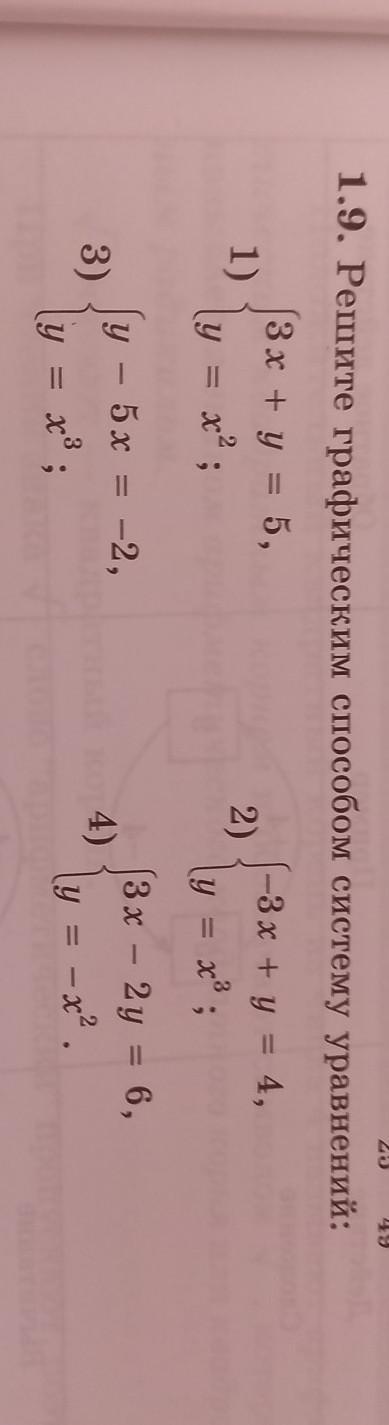 25 49
1.9. Решите графическим способом систему уравнений:
1) {3x + y = 5,
y = x²;
2) {−3x + y = 4,
y = x³;
3) {y − 5x = −2,
y = x³;
4) {3x − 2y = 6,
y = −x².